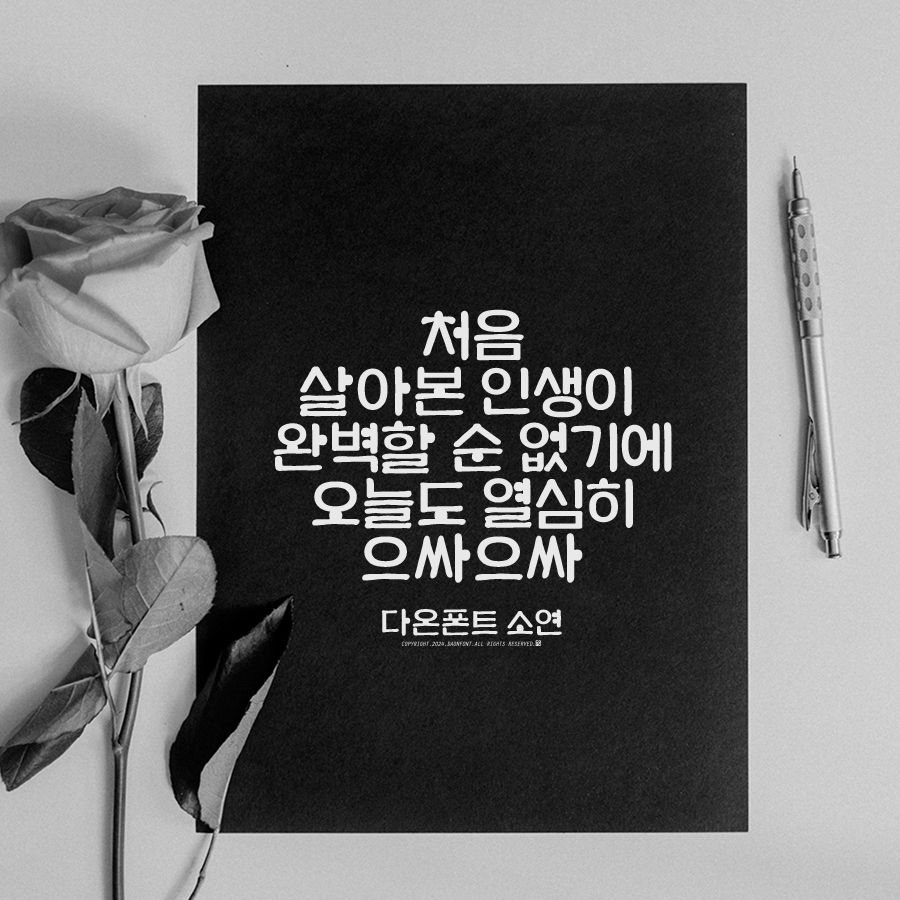 처음
살아본 인생이
완벽할 순 없기에
오늘도 열심히
으싸으싸
다온폰트 소연
COPYRIGHT.2024.DAONFONT.ALL RIGHTS RESERVED.